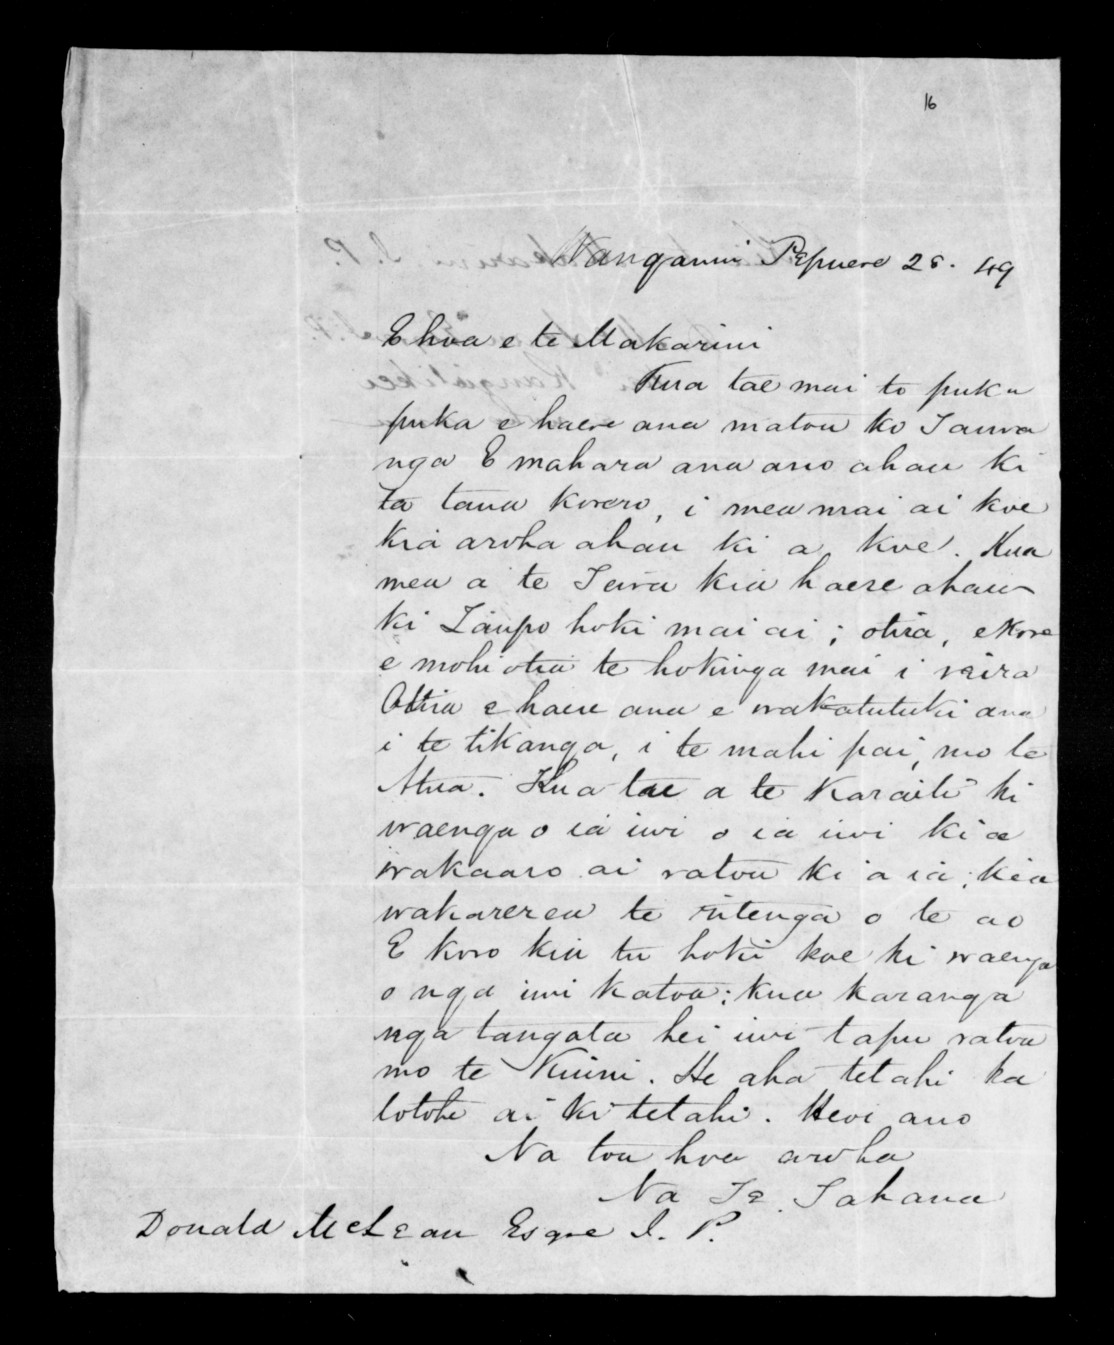 16
Wanganui Pepuere 28. 49
E hoa e te Makarini
Kua tae mai to puka
puka e haere ana matou ko Taura
nga E mahara ana ano ahau ki
ta taua korero, i mea mai ai koe
kia aroha ahau ki a koe. Kua
mea a te Teira kia haere ahau
ki Taupo hoki mai ai; otira, ekore
e mohiotia te hokinga mai i reira
Otira e haere ana e wakatutuki ana
i te tikanga, i te mahi pai, mo te
Atua. Kua tae a te Karaiti ki
waenga o ia iwi o ia iwi kia
wakaaro ai ratou ki a ia; kia
wakarerea te ritenga o te ao
E koro kia tu hoki koe ki waenga
o nga iwi katoa; kua karanga
nga tangata hei iwi tapu ratou
mo te Kuini. He aha tetahi ka
totohe ai ki tetahi. Heoi ano
Na tou hoa aroha
Na Te Tahana
Donald McLean Esqre J. P.